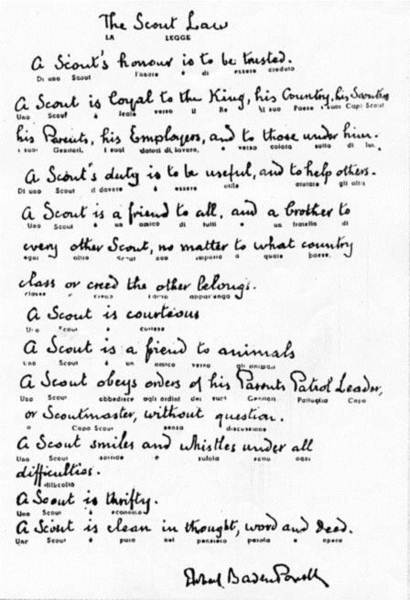 The Scout Law
LA LEGGE
A Scout's honour is to be trusted.
Di uno Scout l'onore è di essere creduto
A Scout is loyal to the King, his Country, his Scouters
Uno Scout è leale verso il Re il suo Paese i suoi Capi Scout
his Parents, his Employers, and to those under him.
i suoi Genitori, i suoi datori di lavoro, e verso coloro sotto di lui.
A Scout's duty is to be useful, and to help others.
Di uno Scout il dovere è essere utile aiutare gli altri
A Scout is a friend to all, and a brother to
Uno Scout è un amico di tutti e un fratello di
every other Scout, no matter to what country
ogni altro Scout non importa a quale paese,
class or creed the other belongs.
classe o credo l'altro appartenga
A Scout is courteous
Uno Scout è cortese
A Scout is a friend to animals
Uno Scout è un amico verso gli animali
A Scout obeys orders of his Parents Patrol Leader,
Uno Scout obbedisce agli ordini dei suoi Genitori Pattuglia Capo
or Scoutmaster, without question.
o Capo Scout senza discussione
A Scout smiles and whistles under all
Uno Scout sorride e zufola ogni
difficulties.
difficoltà
A Scout is thrifty.
Uno Scout è economico
A Scout is clean in thought, word and deed.
Uno Scout è puro nel pensiero parola e opere
Robert Baden Powell